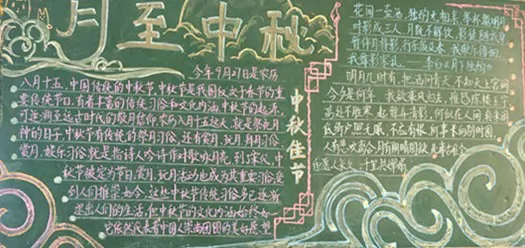 月至中秋
今年9月27日是农历
八月十五，中国传统的中秋节，中秋节是我国仅次于春节的重
要传统节日，有着丰富的传统习俗和文化内涵，中秋节的起源，
可追溯至远古时代的敬月信仰，农历八月十五这天，就是祭祀月
神的日子，中秋节有传统的祭月习俗，还有赏月、玩月、拜月习俗
赏月，娱乐习俗就是指诗人吟诗作对歌咏月亮，到了宋代，
中秋节被定为节日，赏月、玩月活动也成为其重要习俗
到人们推崇，如今，这些中秋节传统习俗多已逐渐
淡出人们的生活，但中秋节的文化内涵始终如一
它依然代表着中国人崇尚团圆的美好愿望
中秋佳节
花间一壶酒，独酌无相亲，举杯邀明月
对影成三人，月既不解饮，影徒随我身
暂伴月将影，行乐须及春，我歌月徘徊
我舞影零乱
明月几时有，把酒问青天，不知天上宫阙
今夕是何年，我欲乘风归去，惟恐琼楼玉宇
高处不胜寒，起舞弄清影，何似在人间，转朱阁
低绮户，照无眠，不应有恨，何事长向别时圆
人有悲欢离合，月有阴晴圆缺，此事古难全
但愿人长久，千里共婵娟